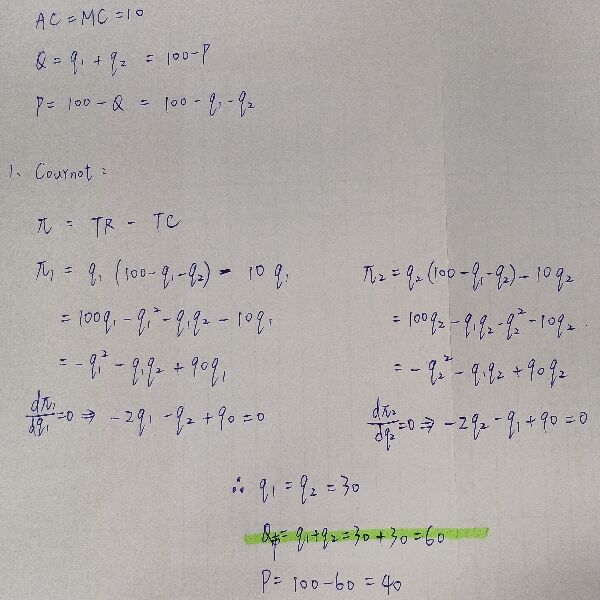 AC = MC = 10
Q = q₁ + q₂ = 100 - P
P = 100 - Q = 100 - q₁ - q₂
1、 Cournot :
π = TR - TC
π₁ = q₁ (100 - q₁ - q₂) - 10 q₁
= 100q₁ - q₁² - q₁q₂ - 10q₁
= -q₁² - q₁q₂ + 90q₁
dπ₁/dq₁ = 0 ⇒ -2q₁ - q₂ + 90 = 0
π₂ = q₂ (100 - q₁ - q₂) - 10q₂
= 100q₂ - q₁q₂ - q₂² - 10q₂
= -q₂² - q₁q₂ + 90q₂
dπ₂/dq₂ = 0 ⇒ -2q₂ - q₁ + 90 = 0
∴ q₁ = q₂ = 30
Q = q₁ + q₂ = 30 + 30 = 60
P = 100 - 60 = 40